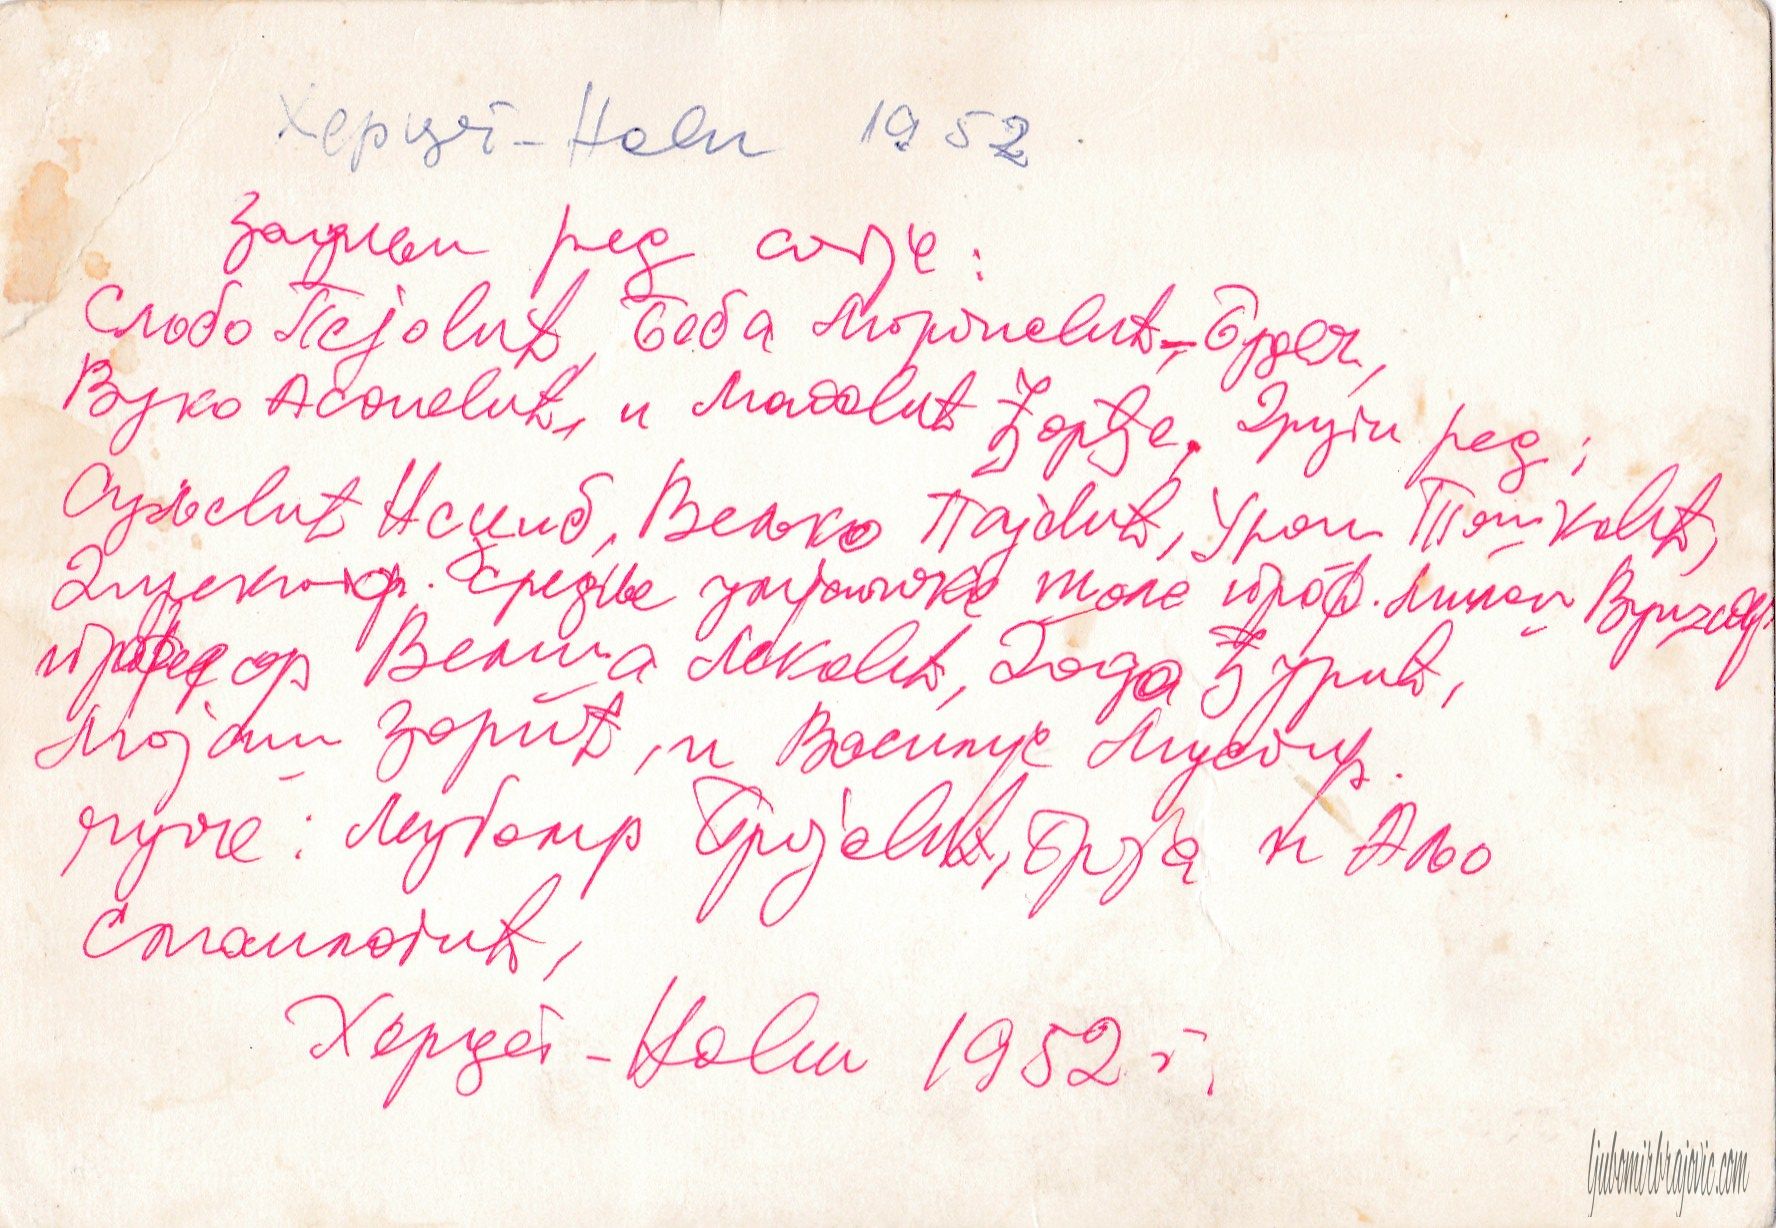 Херцег-Нови 1952.
Задњи ред стоје:
Слобо Пејовић, Беба Мортиевић, - Будеч,
Вуко Асановић, и Ђорђе. Други ред:
Суљевић Неџиб, Вељко Пајовић, Урош Тошковић,
Директор. средње умјетничке школе проф. Милош Вушко
професор Велиша Лековић, Дода Ђурић,
Мојаш Зорић, и Василије
чуче: Љубомир Брајовић, Брајо и Аљо
Смаилагић,
Херцег-Нови 1952 г.
ljubomirbrajovic.com